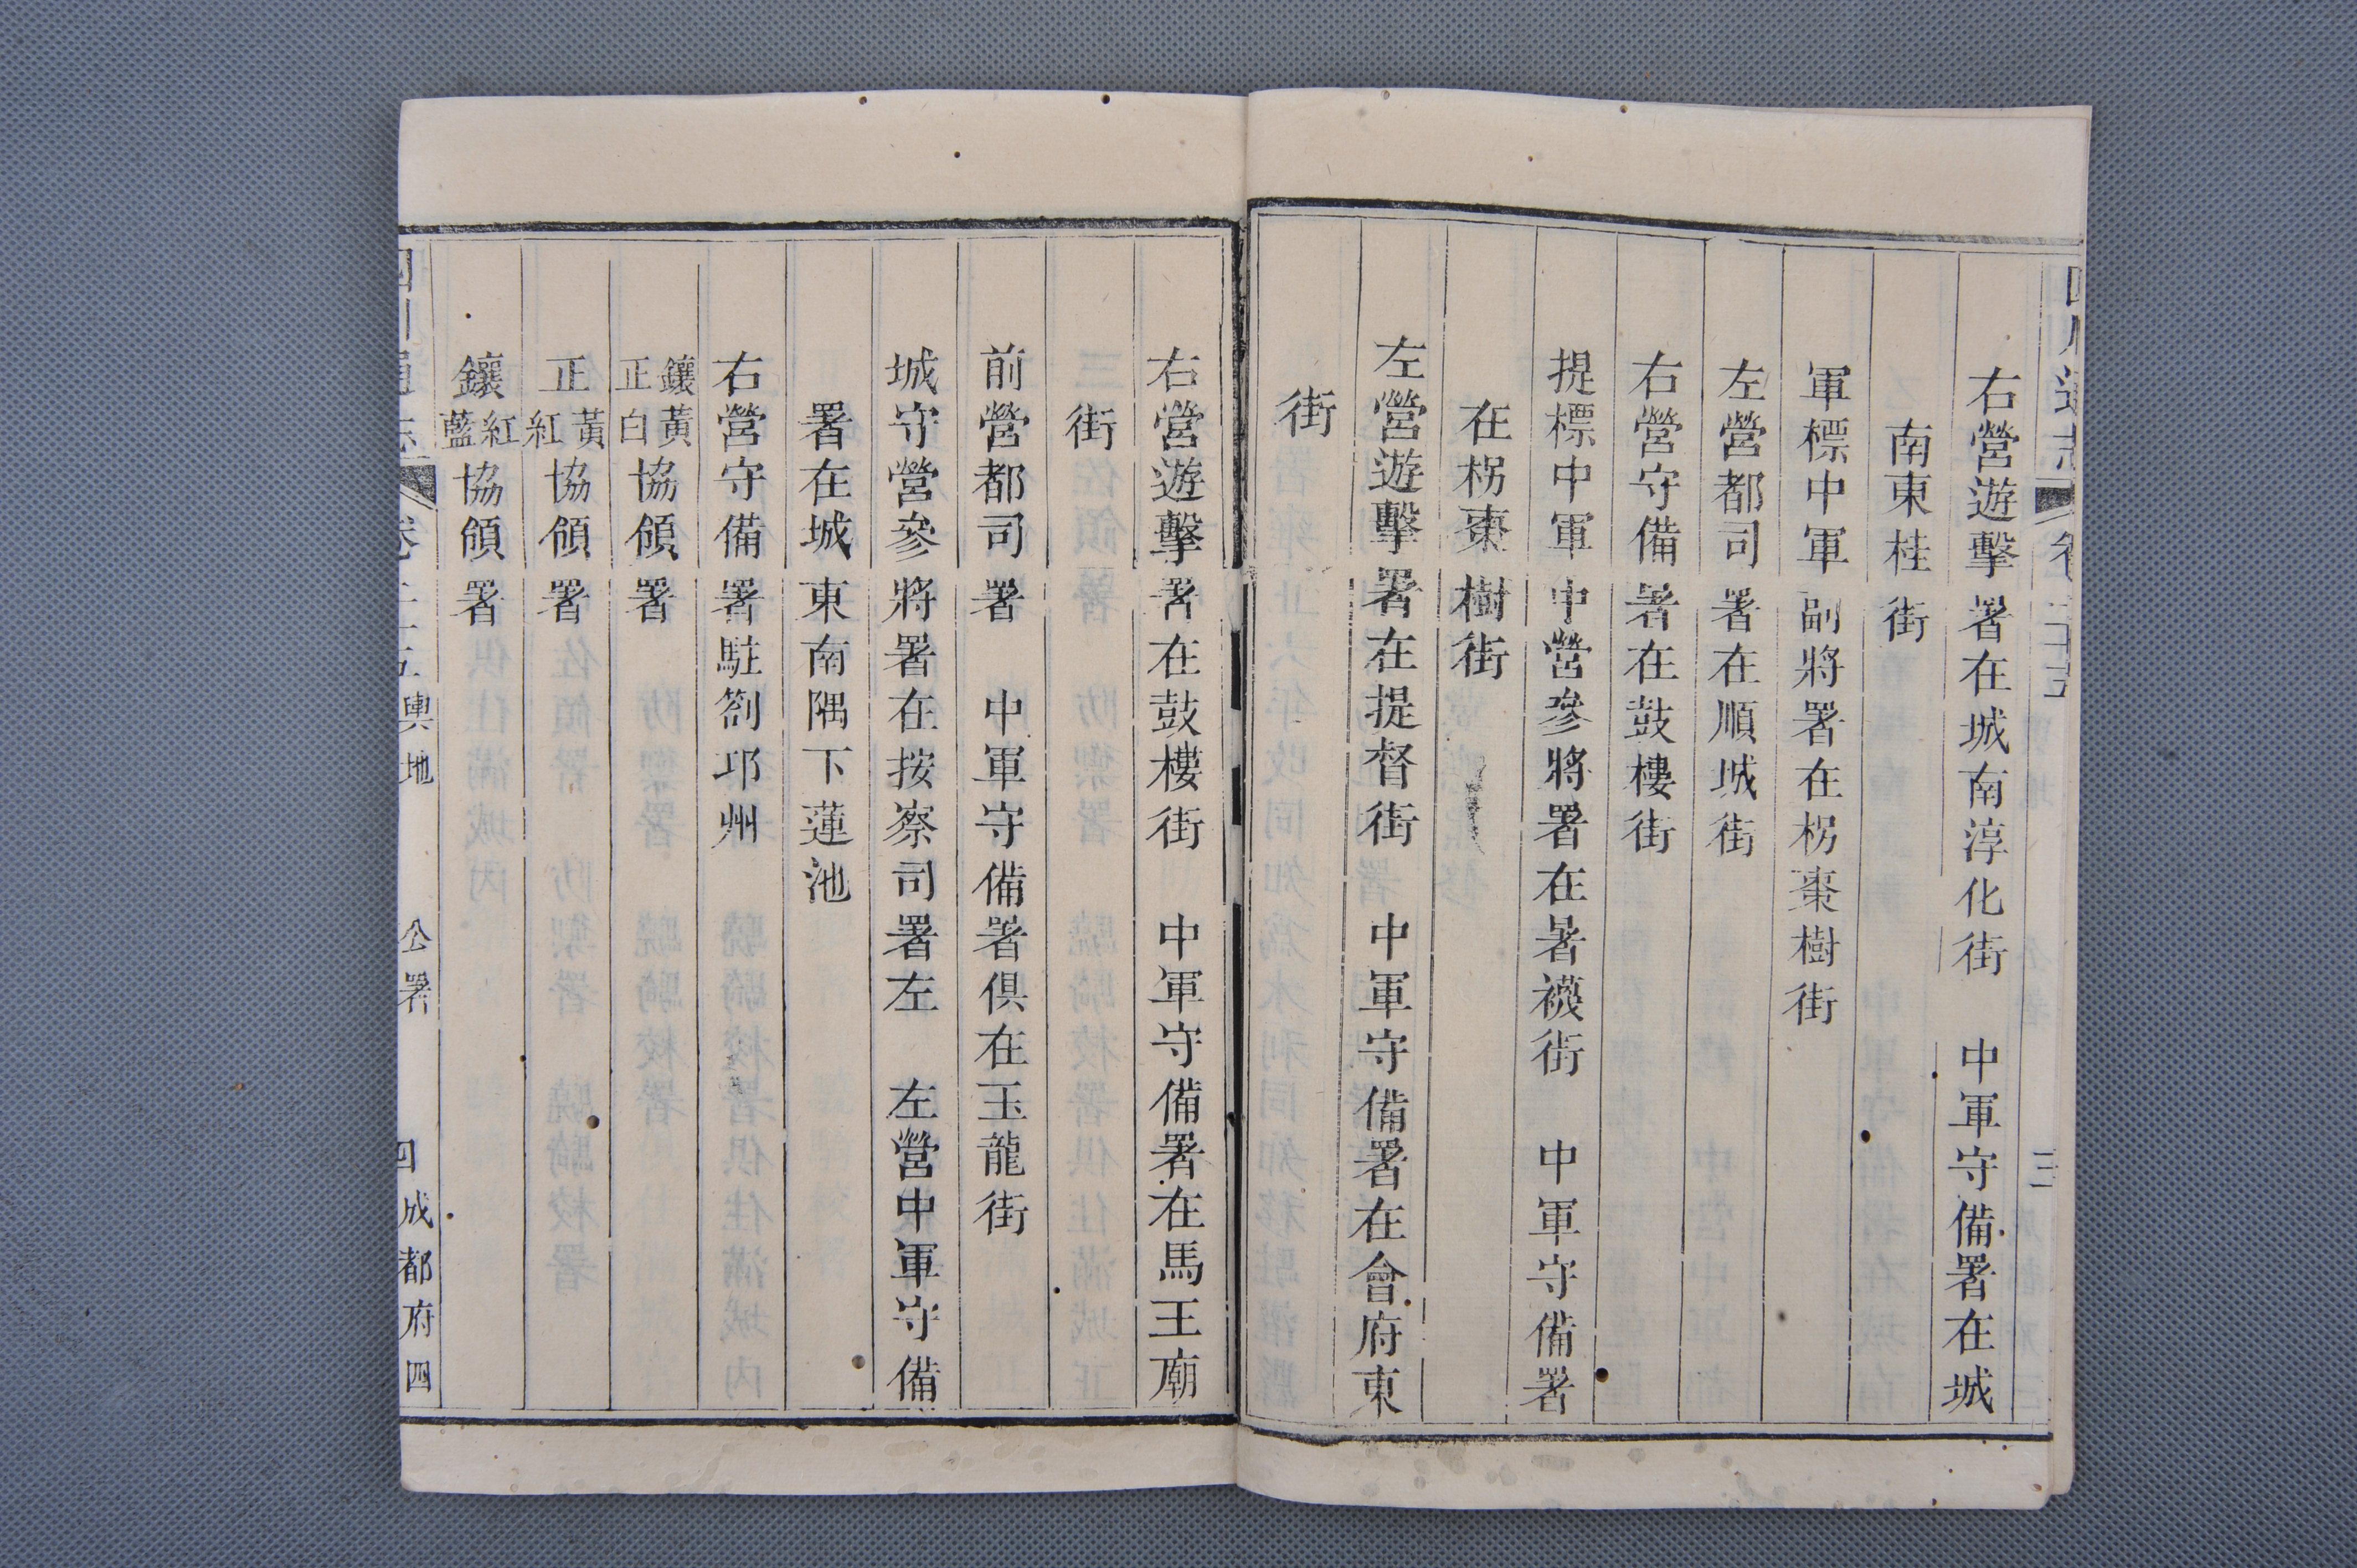 右營遊擊署在城南淳化街　中軍守備署在城
南東桂街
軍標中軍副將署在柺棗樹街
左營都司署在順城街
右營守備署在鼓樓街
提標中軍中營參將署在暑襪街　中軍守備署
在柺棗樹街
左營遊擊署在提督街　中軍守備署在會府東
街
右營遊擊署在鼓樓街　中軍守備署在馬王廟
街
前營都司署　中軍守備署俱在玉龍街
城守營參將署在按察司署左　左營中軍守備
署在城東南隅下蓮池
右營守備署駐劄邛州
鑲黃正白協領署
正黃紅協領署
鑲紅藍協領署
四川通志　卷二十五　輿地　公署　四　成都府四